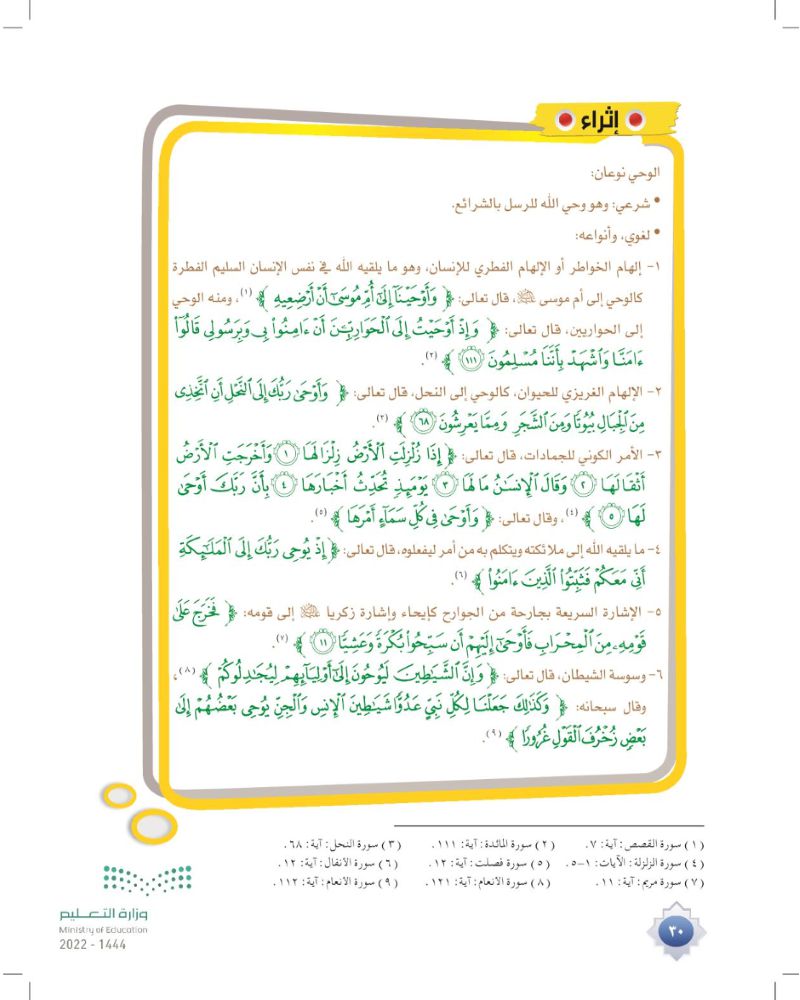 إثراء
الوحي نوعان:
• شرعي: وهو وحي الله للرسل بالشرائع.
• لغوي، وأنواعه:
١- إلهام الخواطر أو الإلهام الفطري للإنسان، وهو ما يلقيه الله في نفس الإنسان السليم الفطرة
كالوحي إلى أم موسى ﷺ، قال تعالى: ﴿ وَأَوْحَيْنَآ إِلَىٰٓ أُمِّ مُوسَىٰٓ أَنْ أَرْضِعِيهِ ﴾ (١)، ومنه الوحي
إلى الحواريين، قال تعالى: ﴿ وَإِذْ أَوْحَيْتُ إِلَى ٱلْحَوَارِيِّـۧنَ أَنْ ءَامِنُوا۟ بِى وَبِرَسُولِى قَالُوٓا۟
ءَامَنَّا وَٱشْهَدْ بِأَنَّنَا مُسْلِمُونَ ١١١ ﴾ (٢).
٢- الإلهام الغريزي للحيوان، كالوحي إلى النحل، قال تعالى: ﴿ وَأَوْحَىٰ رَبُّكَ إِلَى ٱلنَّحْلِ أَنِ ٱتَّخِذِى
مِنَ ٱلْجِبَالِ بُيُوتًا وَمِنَ ٱلشَّجَرِ وَمِمَّا يَعْرِشُونَ ٦٨ ﴾ (٣).
٣- الأمر الكوني للجمادات، قال تعالى: ﴿ إِذَا زُلْزِلَتِ ٱلْأَرْضُ زِلْزَالَهَا ١ وَأَخْرَجَتِ ٱلْأَرْضُ
أَثْقَالَهَا ٢ وَقَالَ ٱلْإِنسَٰنُ مَا لَهَا ٣ يَوْمَئِذٍ تُحَدِّثُ أَخْبَارَهَا ٤ بِأَنَّ رَبَّكَ أَوْحَىٰ
لَهَا ٥ ﴾ (٤)، وقال تعالى: ﴿ وَأَوْحَىٰ فِى كُلِّ سَمَآءٍ أَمْرَهَا ﴾ (٥).
٤- ما يلقيه الله إلى ملائكته ويتكلم به من أمر ليفعلوه، قال تعالى: ﴿ إِذْ يُوحِى رَبُّكَ إِلَى ٱلْمَلَٰٓئِكَةِ
أَنِّى مَعَكُمْ فَثَبِّتُوا۟ ٱلَّذِينَ ءَامَنُوا۟ ﴾ (٦).
٥- الإشارة السريعة بجارحة من الجوارح كإيحاء وإشارة زكريا ﷺ إلى قومه: ﴿ فَخَرَجَ عَلَىٰ
قَوْمِهِۦ مِنَ ٱلْمِحْرَابِ فَأَوْحَىٰٓ إِلَيْهِمْ أَن سَبِّحُوا۟ بُكْرَةً وَعَشِيًّا ١١ ﴾ (٧).
٦- وسوسة الشيطان، قال تعالى: ﴿ وَإِنَّ ٱلشَّيَٰطِينَ لَيُوحُونَ إِلَىٰٓ أَوْلِيَآئِهِمْ لِيُجَٰدِلُوكُمْ ﴾ (٨)،
وقال سبحانه: ﴿ وَكَذَٰلِكَ جَعَلْنَا لِكُلِّ نَبِىٍّ عَدُوًّا شَيَٰطِينَ ٱلْإِنسِ وَٱلْجِنِّ يُوحِى بَعْضُهُمْ إِلَىٰ
بَعْضٍ زُخْرُفَ ٱلْقَوْلِ غُرُورًا ﴾ (٩).
(١) سورة القصص: آية: ٧. (٢) سورة المائدة: آية: ١١١. (٣) سورة النحل: آية: ٦٨.
(٤) سورة الزلزلة: الآيات: ١-٥. (٥) سورة فصلت: آية: ١٢. (٦) سورة الأنفال: آية: ١٢.
(٧) سورة مريم: آية: ١١. (٨) سورة الأنعام: آية: ١٢١. (٩) سورة الأنعام: آية: ١١٢.
وزارة التعليم
Ministry of Education
2022 - 1444
٣٠